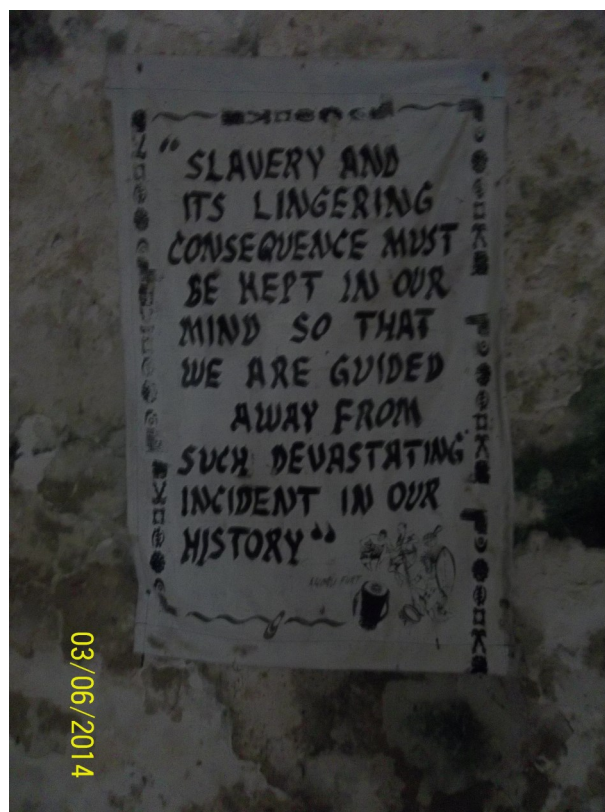 “SLAVERY AND
ITS LINGERING
CONSEQUENCE MUST
BE KEPT IN OUR
MIND SO THAT
WE ARE GUIDED
AWAY FROM
SUCH DEVASTATING
INCIDENT IN OUR
HISTORY“
03/06/2014